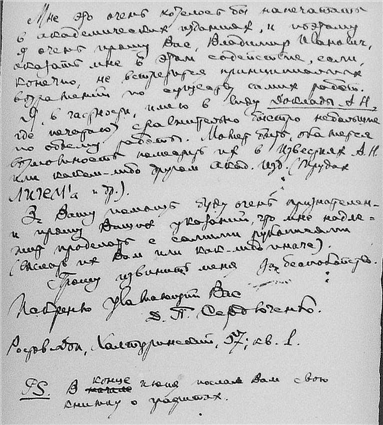 Мне это очень хотелось бы напечатать
в академических изданиях, и поэтому
я очень прошу Вас, Владимир Иванович,
оказать мне в этом содействие, если,
конечно, не встретится принципиальных
возражений по существу самих работ.
Я, в частности, имею в виду Доклады А.Н.
где печатают сравнительно быстро небольшие
по объему работы. Может быть окажется
возможность поместить их в Известиях А.Н.
или каком-либо другом акад. изд. (Трудах
ЛИГЕМ'а и др.).
За Вашу помощь буду очень признателен
и прошу Ваших указаний, что мне надле-
жит проделать с самими рукописями
(выслать их Вам или как-либо иначе).
Прошу извинить меня за беспокойство.
Искренно уважающий Вас
Д. П. Сердюченко.
Ростов н/Дон, 57, кв. 1.
PS. В конце июня послал Вам свою
книжку о